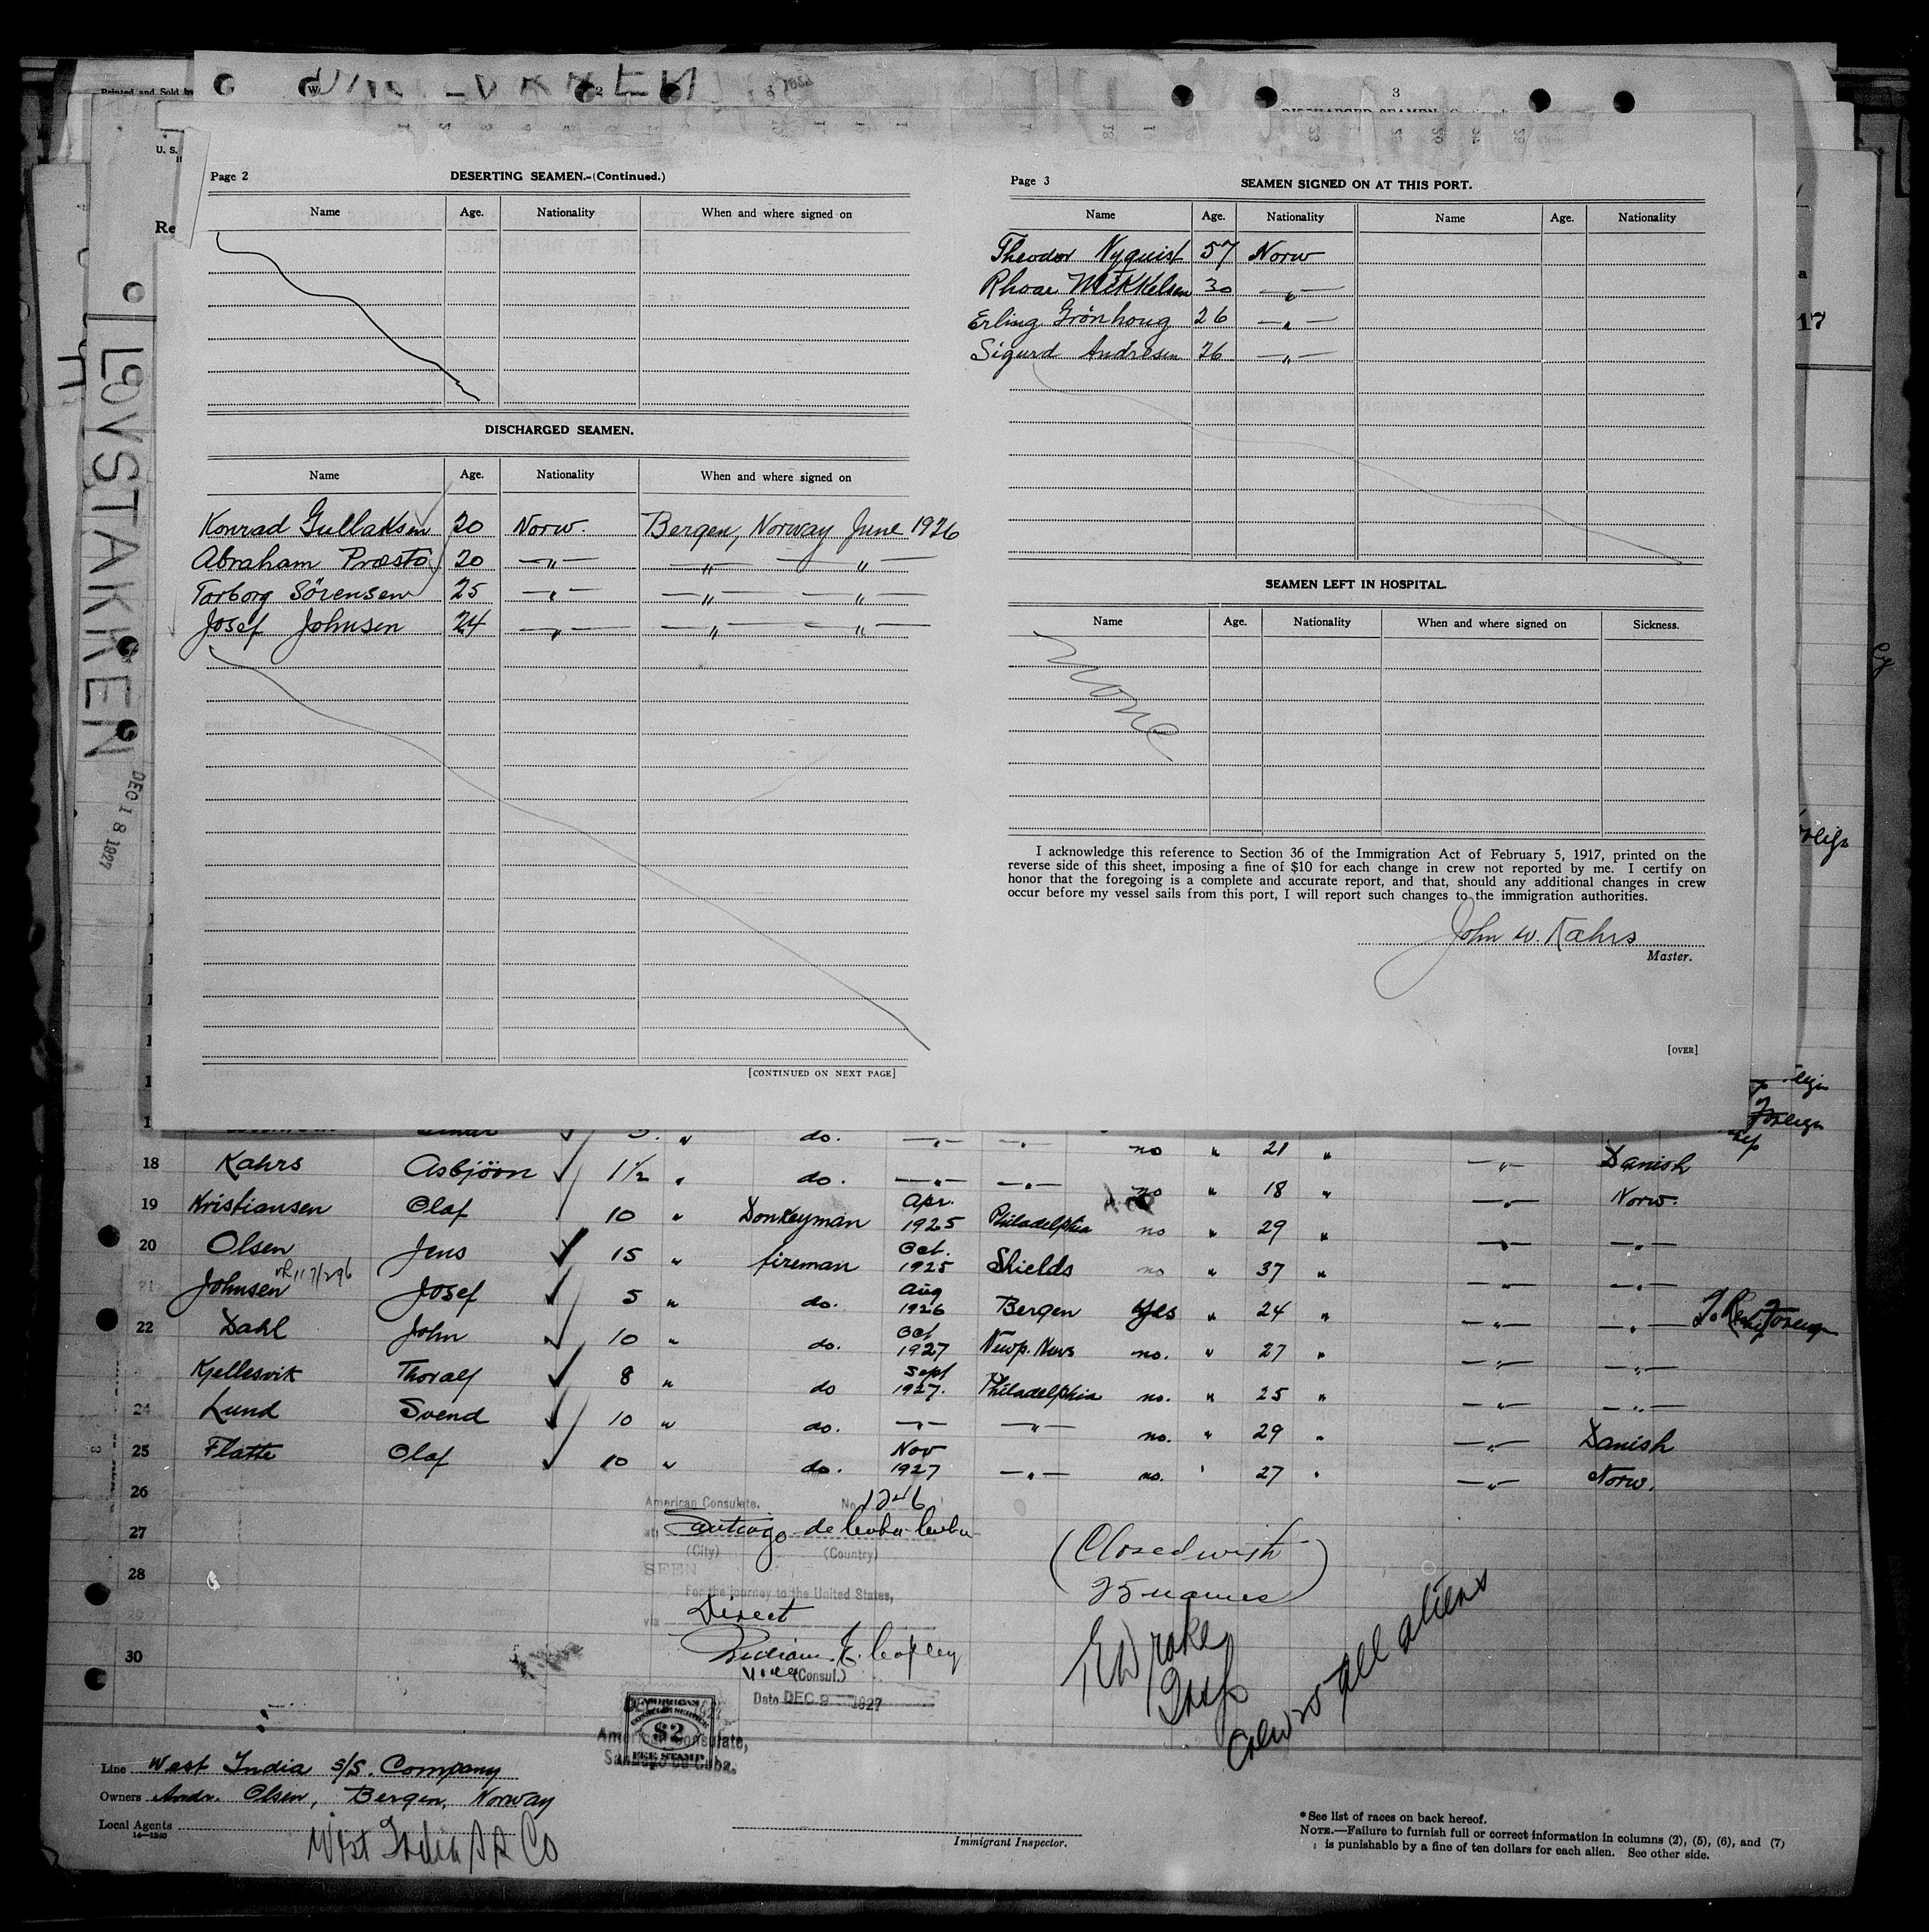 Page 2
DESERTING SEAMEN.-(Continued.)
Name Age. Nationality When and where signed on
DISCHARGED SEAMEN.
Name Age. Nationality When and where signed on
Konrad Gullaksen 20 Norw. Bergen, Norway June 1926
Abraham Præstö 20 —"— —"— —"—
Torborg Sörensen 25 —"— —"— —"—
Josef Johnsen 24 —"— —"— —"—
[CONTINUED ON NEXT PAGE]
Page 3
SEAMEN SIGNED ON AT THIS PORT.
Name Age. Nationality Name Age. Nationality
Theodor Nyquist 57 Norw
Rhoar Mikkelsen 30 —"—
Erling Grönhoug 26 —"—
Sigurd Andresen 26 —"—
SEAMEN LEFT IN HOSPITAL.
Name Age. Nationality When and where signed on Sickness.
None
I acknowledge this reference to Section 36 of the Immigration Act of February 5, 1917, printed on the
reverse side of this sheet, imposing a fine of $10 for each change in crew not reported by me. I certify on
honor that the foregoing is a complete and accurate report, and that, should any additional changes in crew
occur before my vessel sails from this port, I will report such changes to the immigration authorities.
John W. Kahrs
Master.
[OVER]
LOVSTAKKEN
DEC 18 1927
do. —"— —"— no " 21 " —"— Danish
18 Kahrs Asbjörn 1½ " do. —"— —"— no " 18 " —"— Norw.
19 Kristiansen Olaf 10 " Donkeyman Apr. 1925 Philadelphia no " 29 " —"— —"—
20 Olsen Jens 15 " fireman Oct. 1925 Shields no " 37 " —"— —"—
21 Johnsen Josef 5 " do. Aug 1926 Bergen Yes " 24 " —"— —"—
22 Dahl John 10 " do. Oct 1927 Newp. News no. " 27 " —"— —"—
Kjellesvik Thoralf 8 " do Sept 1927. Philadelphia no. " 25 " —"— —"—
24 Lund Svend 10 " do. —"— —"— no. " 29 " —"— Danish
25 Flatte Olaf 10 " do. Nov 1927 —"— no. " 27 " —"— Norw.
26
27
28
30
American Consulate, No. 1246
at Santiago de Cuba Cuba
(City) (Country)
SEEN
For the journey to the United States,
via Direct
William E. Copley
Vice (Consul.)
Date DEC 9 1927
AMERICAN
CONSULAR SERVICE
$2
FEE STAMP
American Consulate,
Santiago de Cuba.
(Closed with
25 names)
all aliens
Line West India S/S. Company
Owners Andr. Olsen, Bergen, Norway
Local Agents
14—1240
West India S S Co
Immigrant Inspector.
*See list of races on back hereof.
NOTE.—Failure to furnish full or correct information in columns (2), (5), (6), and (7)
is punishable by a fine of ten dollars for each alien. See other side.